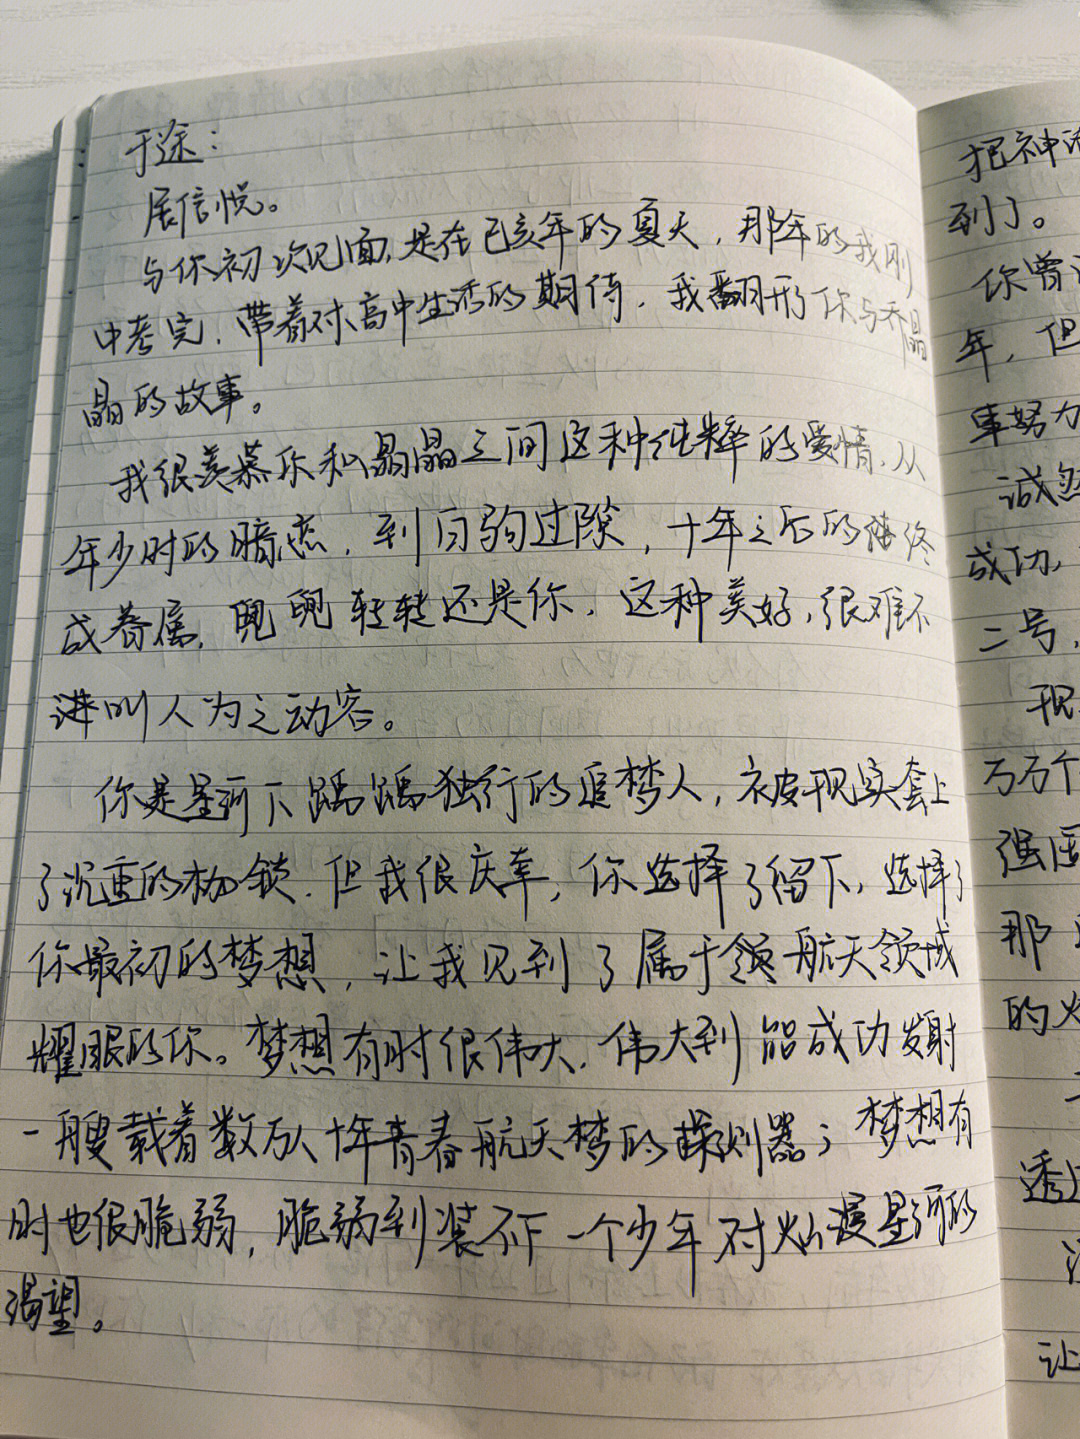 于途：
展信悦。
与你初次见面，是在己亥年的夏天，那年的我刚
中考完，带着对高中生活的期待，我翻开你与乔晶
晶的故事。
我很羡慕你和晶晶之间这种纯粹的爱情，从
年少时的暗恋，到白驹过隙，十年之后的终
成眷属，兜兜转转还是你，这种美好，很难不
叫人为之动容。
你是星河下踽踽独行的追梦人，被现实套上
了沉重的枷锁，但我很庆幸，你选择了留下，选择了
你最初的梦想，让我见到了属于航天领域
耀眼的你。梦想有时很伟大，伟大到能成功发射
一艘载着数万人十年青春航天梦的探测器；梦想有
时也很脆弱，脆弱到装不下一个少年对灿漫星河的
渴望。
把神
到了。
你曾
年，但
事努力
诚然
成功，
二号，
现
万万个
强国
那
的火
透
让